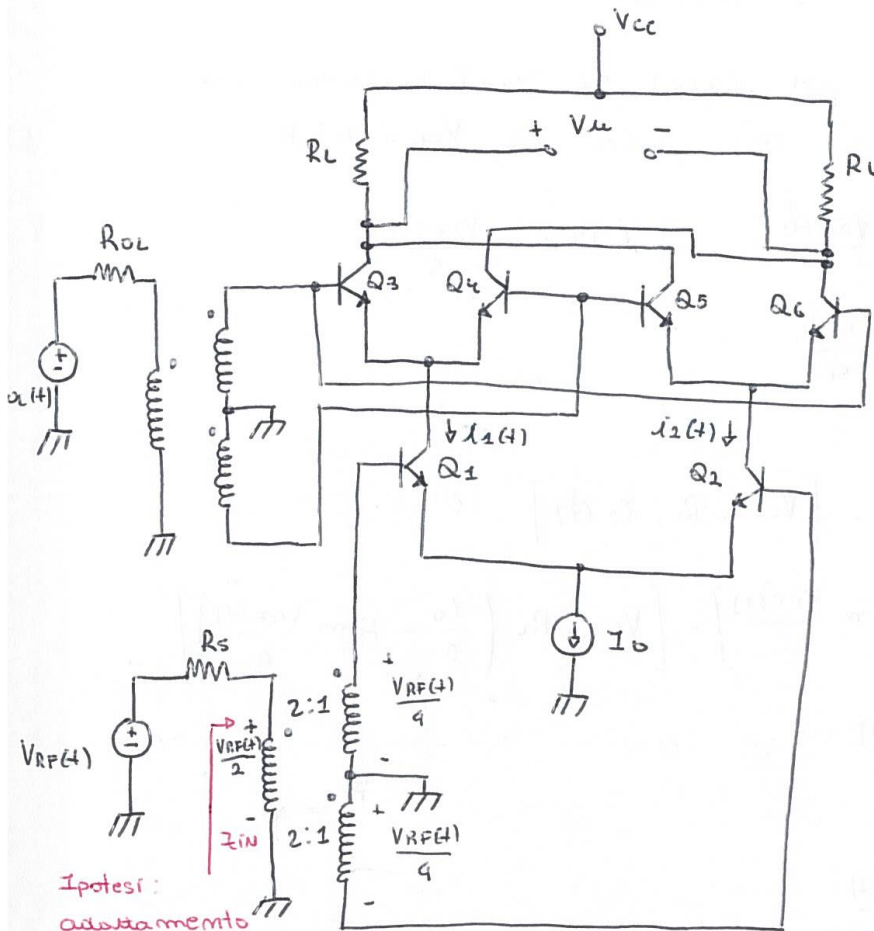 Vcc
+ Vu -
RL
RL
ROL
Q3
Q4
Q5
Q6
+
-
OL(t)
i1(t)
i2(t)
Q1
Q2
I0
RS
+
-
VRF(t)
2:1
+
VRF(t)/4
-
+
VRF(t)/2
-
ZIN
2:1
+
VRF(t)/4
-
Ipotesi:
adattamento